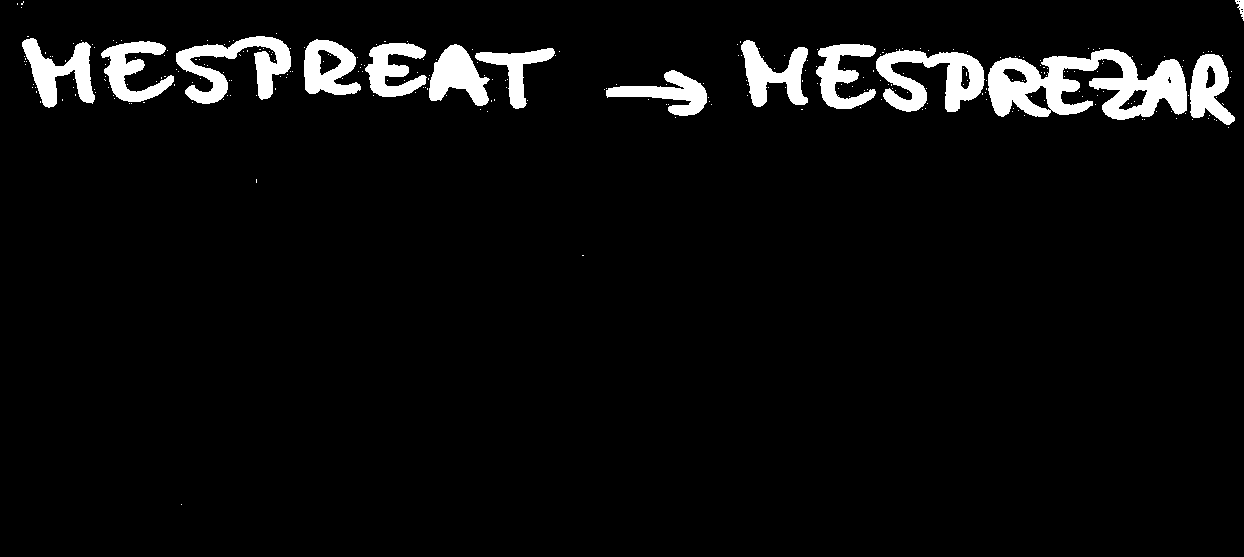 MESPREAT → MESPREZAR